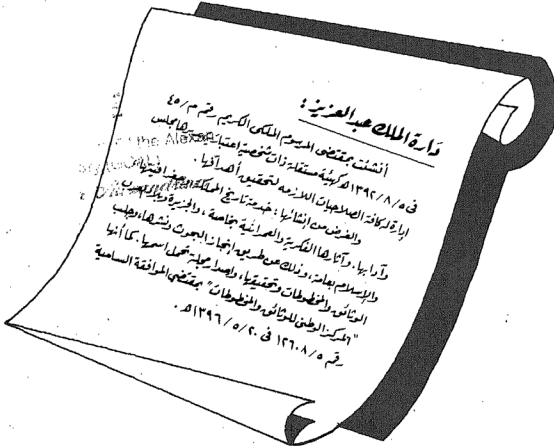 دارة الملك عبد العزيز :
أنشئت بمقتضى المرسوم الملكي الكريم رقم م/٤٥
في ١٣٩٢/٨/٥ هـ كهيئة مستقلة ذات شخصية اعتبارية مجلس
إدارة له كافة الصلاحيات اللازمة لتحقيق أهدافها .
والغرض من إنشائها : خدمة تاريخ المملكة وجغرافيتها
وآدابها . وآثارها الفكرية والعمرانية بخاصة ، والجزيرة وبلاد العرب
والإسلام بعامة ، وذلك عن طريق إنجاز البحوث ونشرها ، وجلب
الوثائق والمخطوطات وتحقيقها ، وإصدار مجلة تحمل اسمها . كما أنها
"المركز الوطني للوثائق والمخطوطات" بمقتضى الموافقة السامية
رقم ١٢٦٠٨/٥ في ١٣٩٦/٥/٢٠ هـ .
the Alexan